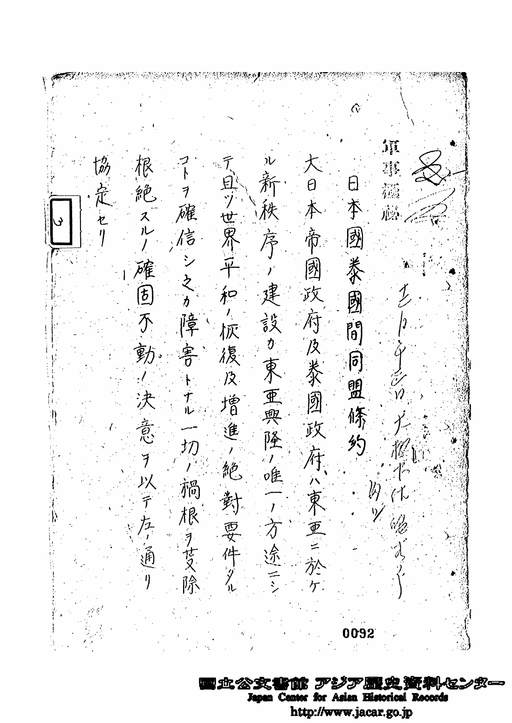 軍事極秘
日本國泰國間同盟條約
大日本帝國政府及泰國政府ハ東亞ニ於ケ
ル新秩序ノ建設カ東亞興隆ノ唯一ノ方途ニシ
テ且ツ世界平和ノ恢復及增進ノ絶對要件タル
コトヲ確信シ之カ障害トナル一切ノ禍根ヲ芟除
根絶スルノ確固不動ノ決意ヲ以テ左ノ通リ
協定セリ
0092
國立公文書館 アジア歴史資料センター
Japan Center for Asian Historical Records
http://www.jacar.go.jp